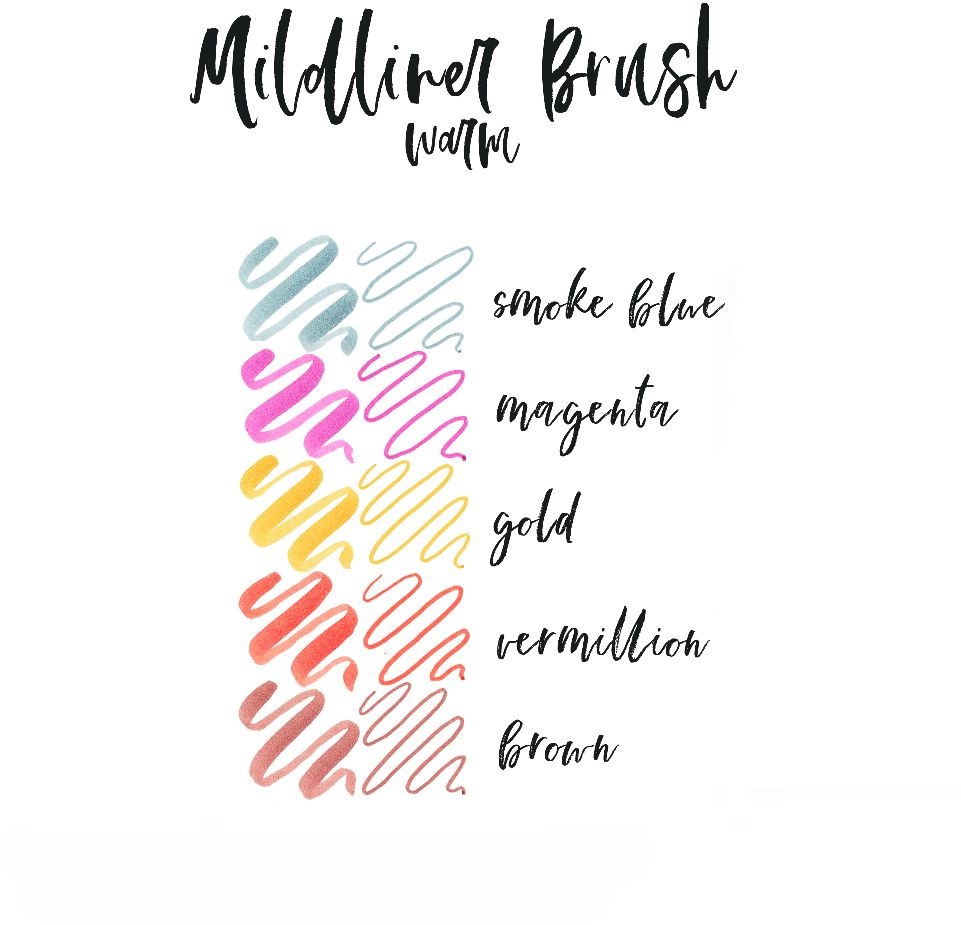 Mildliner Brush
warm
smoke blue
magenta
gold
vermillion
brown